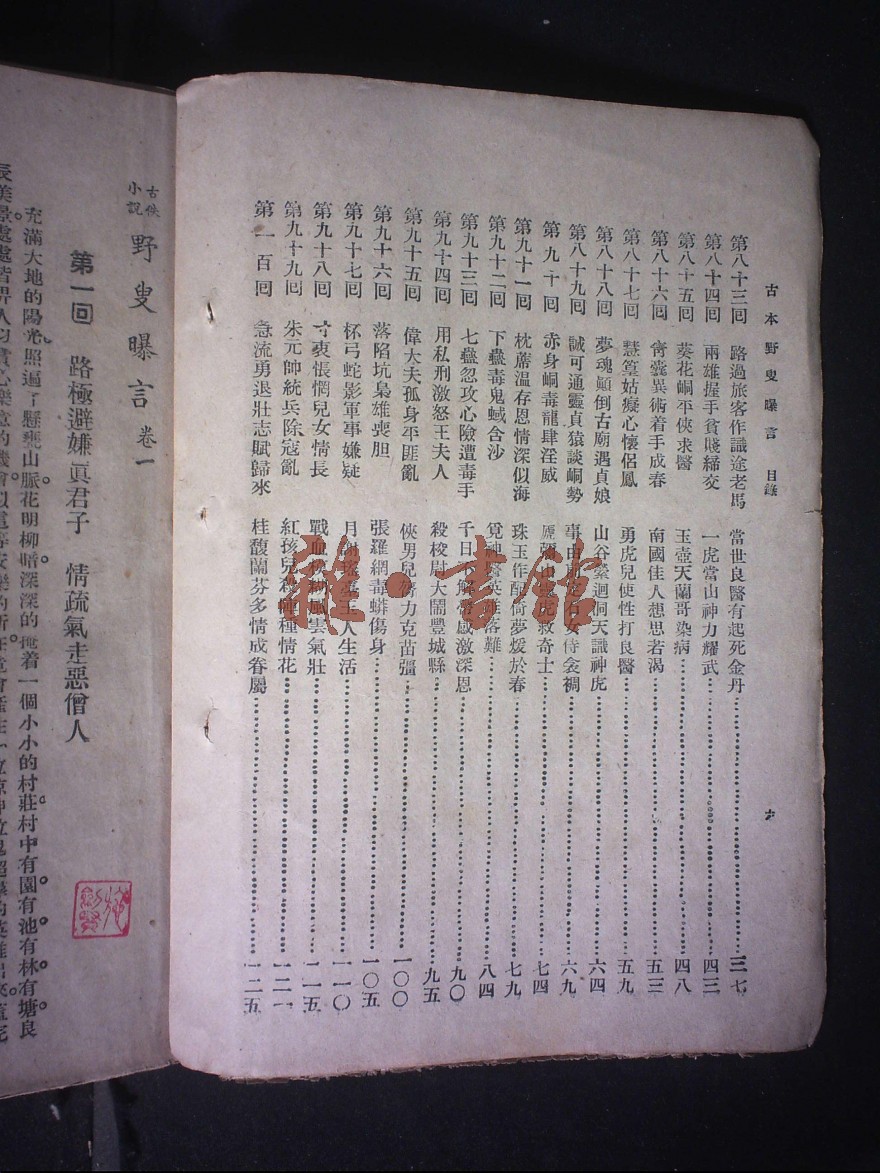 古本野叟曝言 目錄
六
第八十三回 路過旅客作識途老馬 當世良醫有起死金丹 三七
第八十四回 兩雄握手貧賤締交 一虎當山神力耀武 四三
第八十五回 葵花峒平俠求醫 玉壺天蘭哥染病 四八
第八十六回 奇囊異術着手成春 南國佳人想思若渴 五三
第八十七回 慧篁姑癡心懷侶鳳 勇虎兒使性打良醫 五九
第八十八回 夢魂顚倒古廟遇貞娘 山谷縈迴洞天識神虎 六四
第八十九回 誠可通靈貞猿談峒勢 事由 石女侍衾裯 六九
第九十回 赤身峒毒龍肆淫威 虎救奇士 七四
第九十一回 枕蓆溫存恩情深似海 珠玉作酧倚夢媛於春 七九
第九十二回 下蠱毒鬼蜮含沙 覓神醫英雄落難 八四
第九十三回 七蠱忽攻心險遭毒手 千日 解骨感激深恩 九〇
第九十四回 用私刑激怒王夫人 殺梭尉大鬧豐城縣 九五
第九十五回 偉大夫孤身平匪亂 俠男兒努力克苗彊 一〇〇
第九十六回 落陷坑梟雄喪胆 張羅網毒蟒傷身 一〇五
第九十七回 杯弓蛇影軍事嫌疑 月 人生活 一一〇
第九十八回 寸衷悵惘兒女情長 戰血 風雲氣壯 一一五
第九十九回 朱元帥統兵除寇亂 紅孩兒殺 種情花 一二一
第一百回 急流勇退壯志賦歸來 桂馥蘭芬多情成眷屬 一二五
雜·書館
古俠
小說
野叟曝言 卷一
第一回 路極避嫌眞君子 情疏氣走惡僧人
充滿大地的陽光照遍了懸甕山脈花明柳暗深深的掩着一個小小的村莊村中有園有池有林有塘良